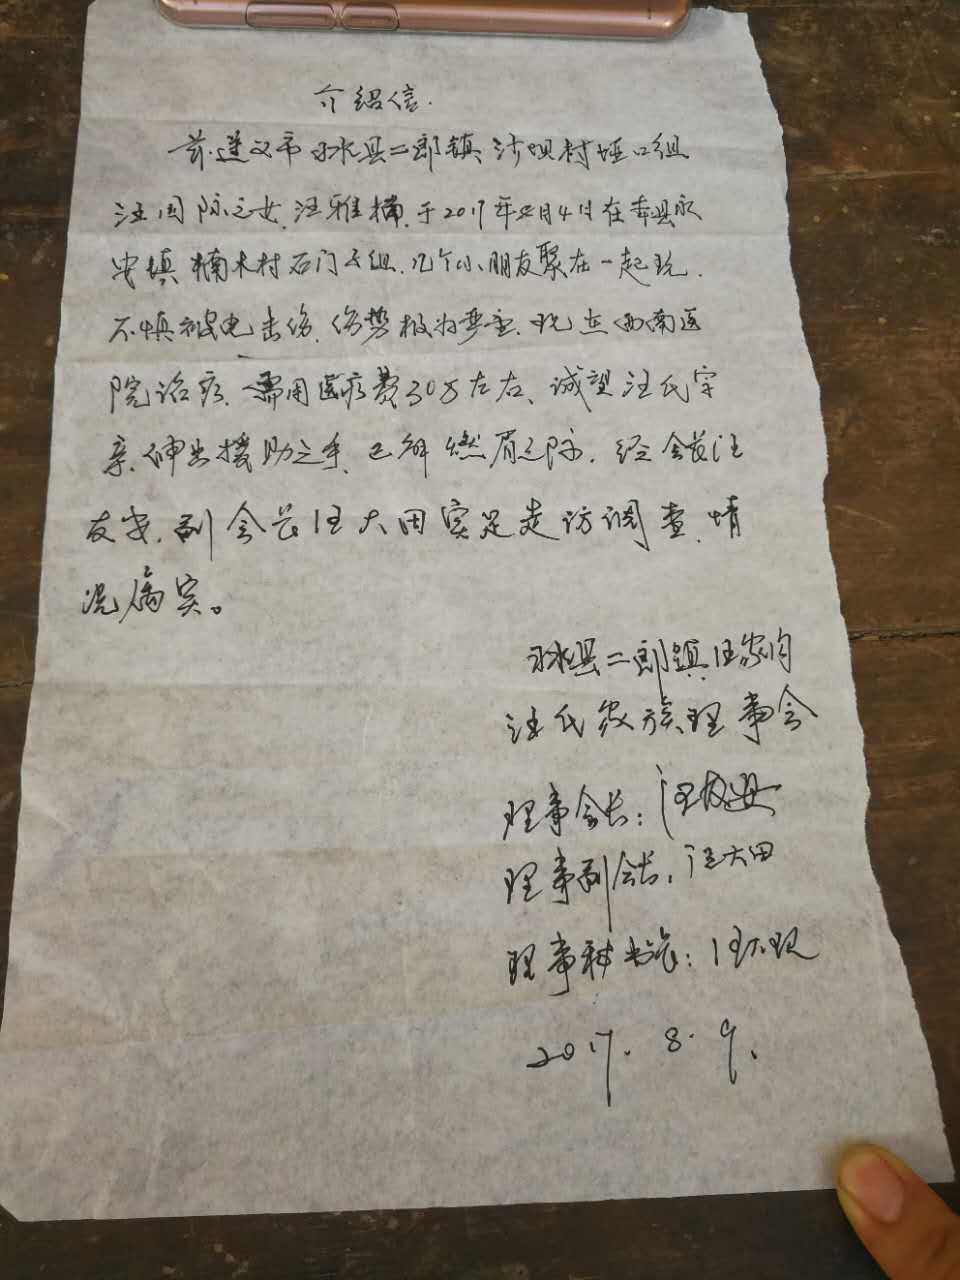 介绍信.
兹遵义市习水县二郎镇沙坝村垭口组
汪国际之女,汪雅楠,于2017年8月4日在本县永
安镇楠木村石门子组,几个小朋友聚在一起玩.
不慎被电击伤,伤势极为严重,现在西南医
院治疗、需用医疗费30万左右、诚望汪氏宗
亲,伸出援助之手,已解燃眉之际.经会长汪
友安,副会长汪大田实足走访调查,情
况属实。
习水县二郎镇汪家沟
汪氏家族理事会
理事会长:汪友安
理事副会长:汪大田
理事秘书长:汪
2017.8.9.